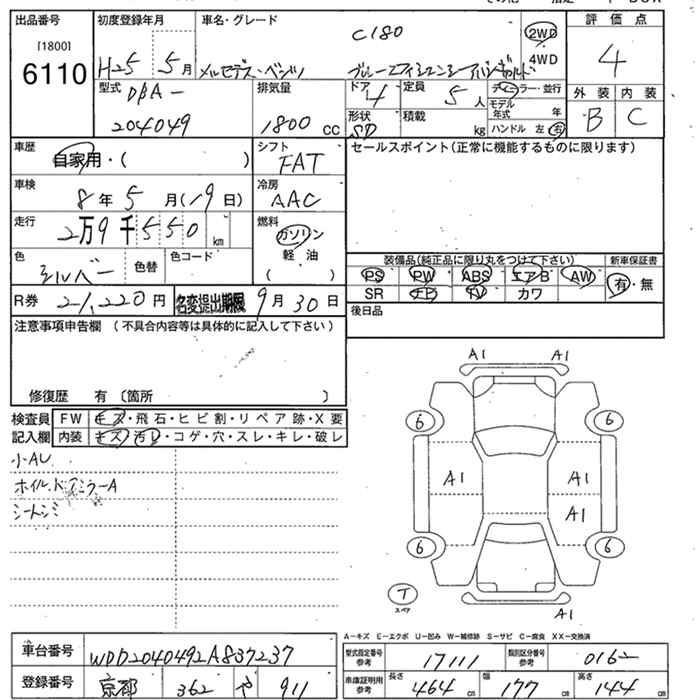 出品番号
[1800]
6110
初度登録年月
H25 5月
車名・グレード
C180
メルセデス・ベンツ ブルーエフィシェンシーアバンギャルド
2WD
4WD
評価点
4
型式
DBA-
204049
排気量
1800 CC
ドア 4
定員 5 人
ディーラー・並行
モデル年式 年
形状 SD
積載 kg
ハンドル 左 右
外装 内装
B C
車歴
自家用・( )
シフト
FAT
セールスポイント(正常に機能するものに限ります)
車検
8年5月(19日)
冷房
AAC
走行
2万9千550 km
燃料
ガソリン
軽油
( )
色
シルバー
色替
色コード
装備品(純正品に限り丸をつけて下さい)
新車保証書
PS PW ABS エアB AW
有・無
SR TV カワ
R券 21,220円
名変提出期限 9月30日
後日品
注意事項申告欄 (不具合内容等は具体的に記入して下さい)
修復歴 有 〔箇所 〕
検査員 FW キズ・飛石・ヒビ割・リペア跡・X要
記入欄 内装 キズ・汚レ・コゲ・穴・スレ・キレ・破レ
小AU
シートシミ
A1 A1
6 6
A1 A1
A1
6 6
T
スペア
A1
A-キズ E-エクボ U-凹み W-補修跡 S-サビ C-腐食 XX-交換済
車台番号 WDD2040492A837237
型式指定番号 参考 17111
類別区分番号 参考 0162
登録番号 京都 362 や 911
車庫証明用 参考
長さ 464 cm
幅 177 cm
高さ 144 cm